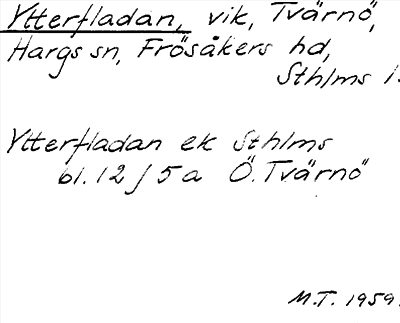 Ytterfladan, vik, Tvärnö,
Hargs sn, Frösåkers hd,
Sthlms l.
Ytterfladan ek Sthlms
bl. 12 J 5 a Ö. Tvärnö
M.T. 1959.